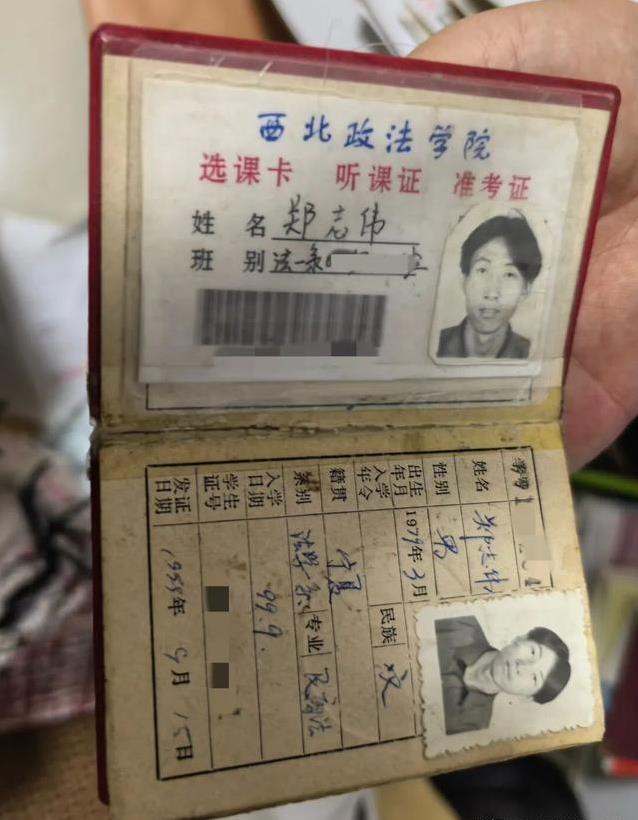 西北政法学院
选课卡 听课证 准考证
姓 名 郑志伟
班 别 法一系
姓名 郑志伟
性别 男
出生年月 1979年3月 民族 汉
入学年令
籍贯 宁夏
系别 法学系 专业
入学日期 99.9.
学生证号
发证日期 1999年9月15日